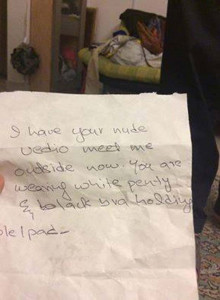 I have your nude
vedio meet me
outside now. You are
wearing white penty
& black bra holding
ple Ipad_